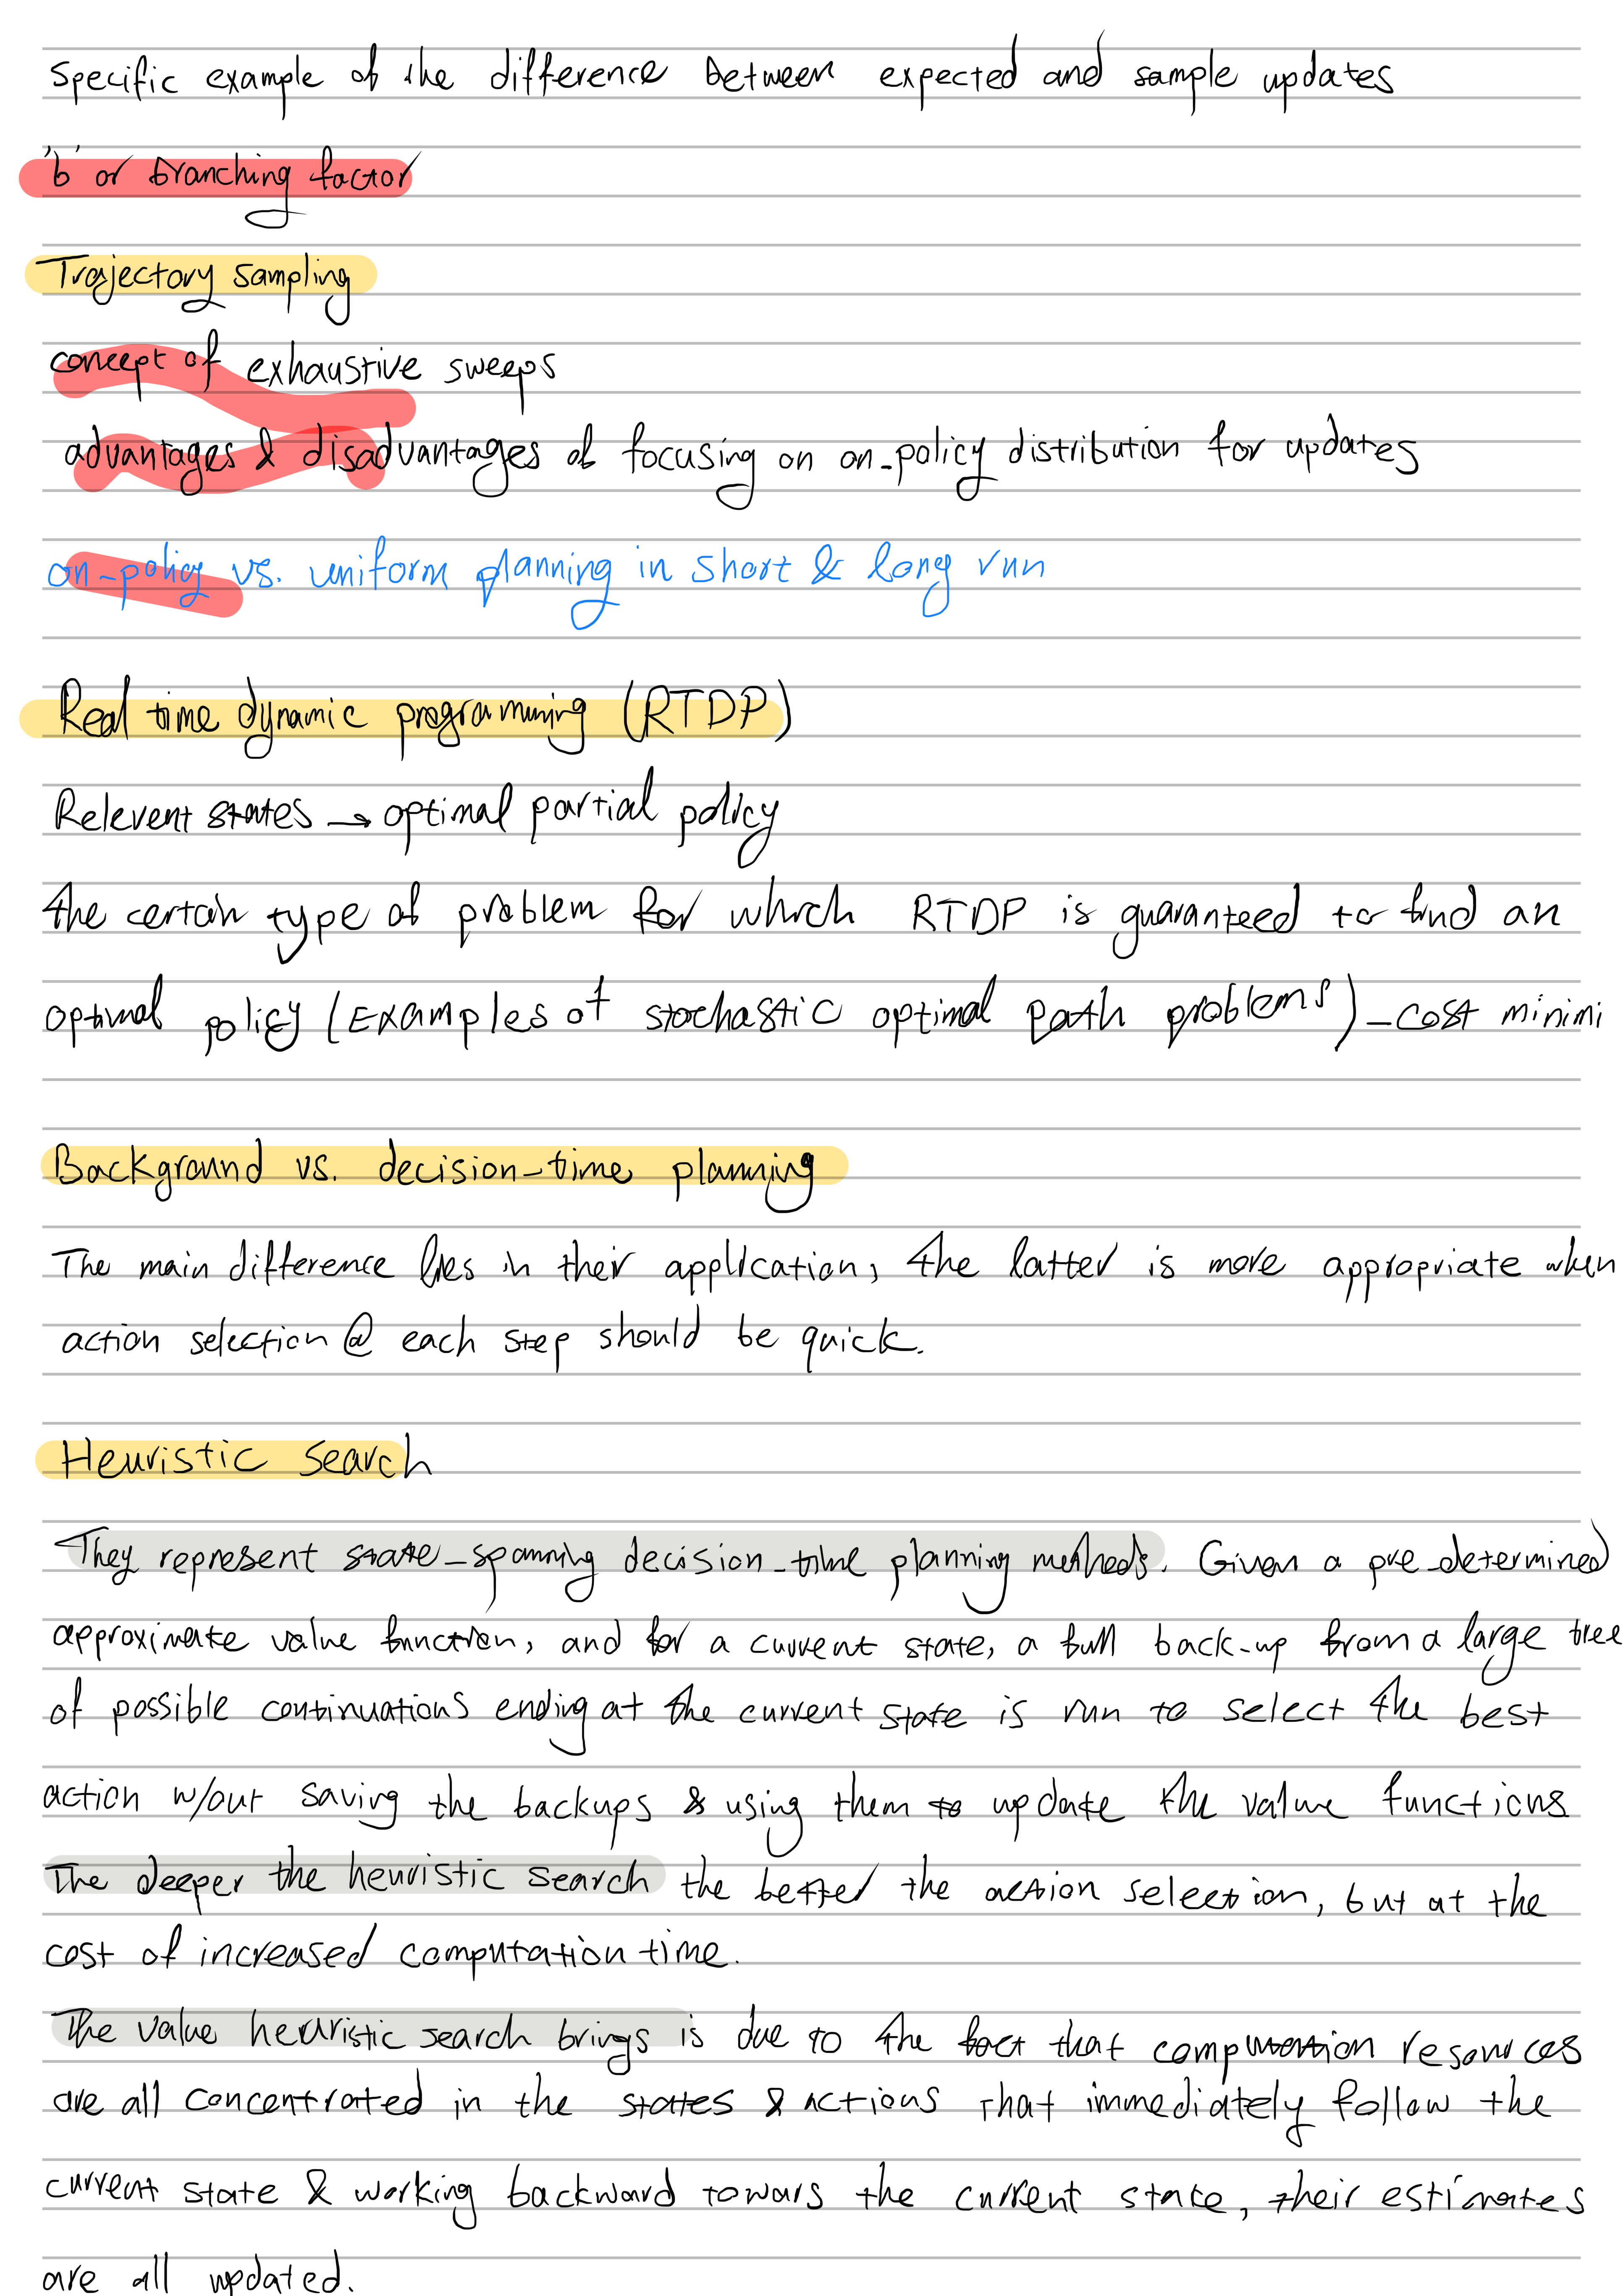 Specific example of the difference between expected and sample updates
'b' or branching factor
Trajectory sampling
concept of exhaustive sweeps
advantages & disadvantages of focusing on on-policy distribution for updates
on-policy vs. uniform planning in short & long run
Real time dynamic programming (RTDP)
Relevent states → optimal partial policy
The certain type of problem for which RTDP is guaranteed to find an
optimal policy (Examples of stochastic optimal path problems) - cost minimi
Background vs. decision-time planning
The main difference lies in their application, the latter is more appropriate when
action selection @ each step should be quick.
Heuristic Search
They represent state-spanning decision-time planning methods. Given a pre-determined
approximate value function, and for a current state, a full back-up from a large tree
of possible continuations ending at the current state is run to select the best
action w/out saving the backups & using them to update the value functions
The deeper the heuristic search the better the action selection, but at the
cost of increased computation time.
The value heuristic search brings is due to the fact that computation resources
are all concentrated in the states & actions that immediately follow the
current state & working backward towars the current state, their estimates
are all updated.